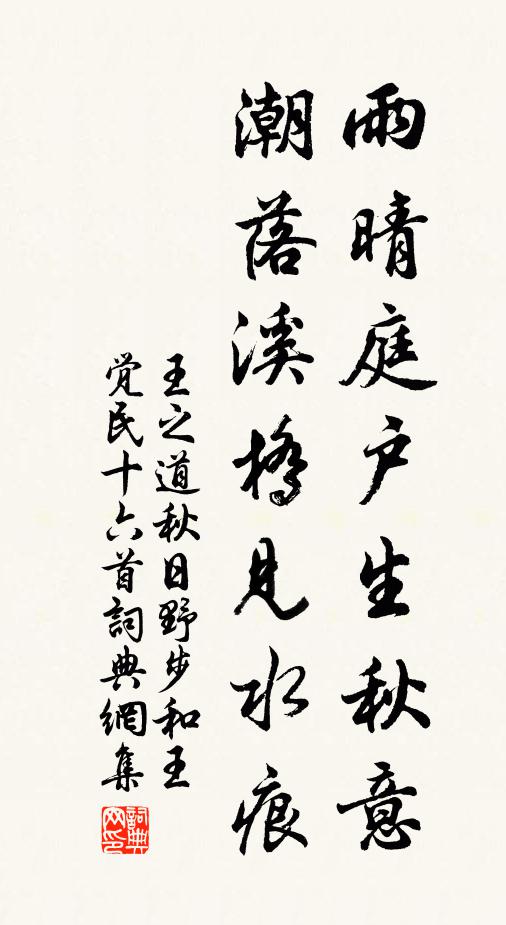 雨晴庭户生秋意
潮落溪橋見水痕
王之道秋日野步和王
觉民十六首詞典網集
詞典网印